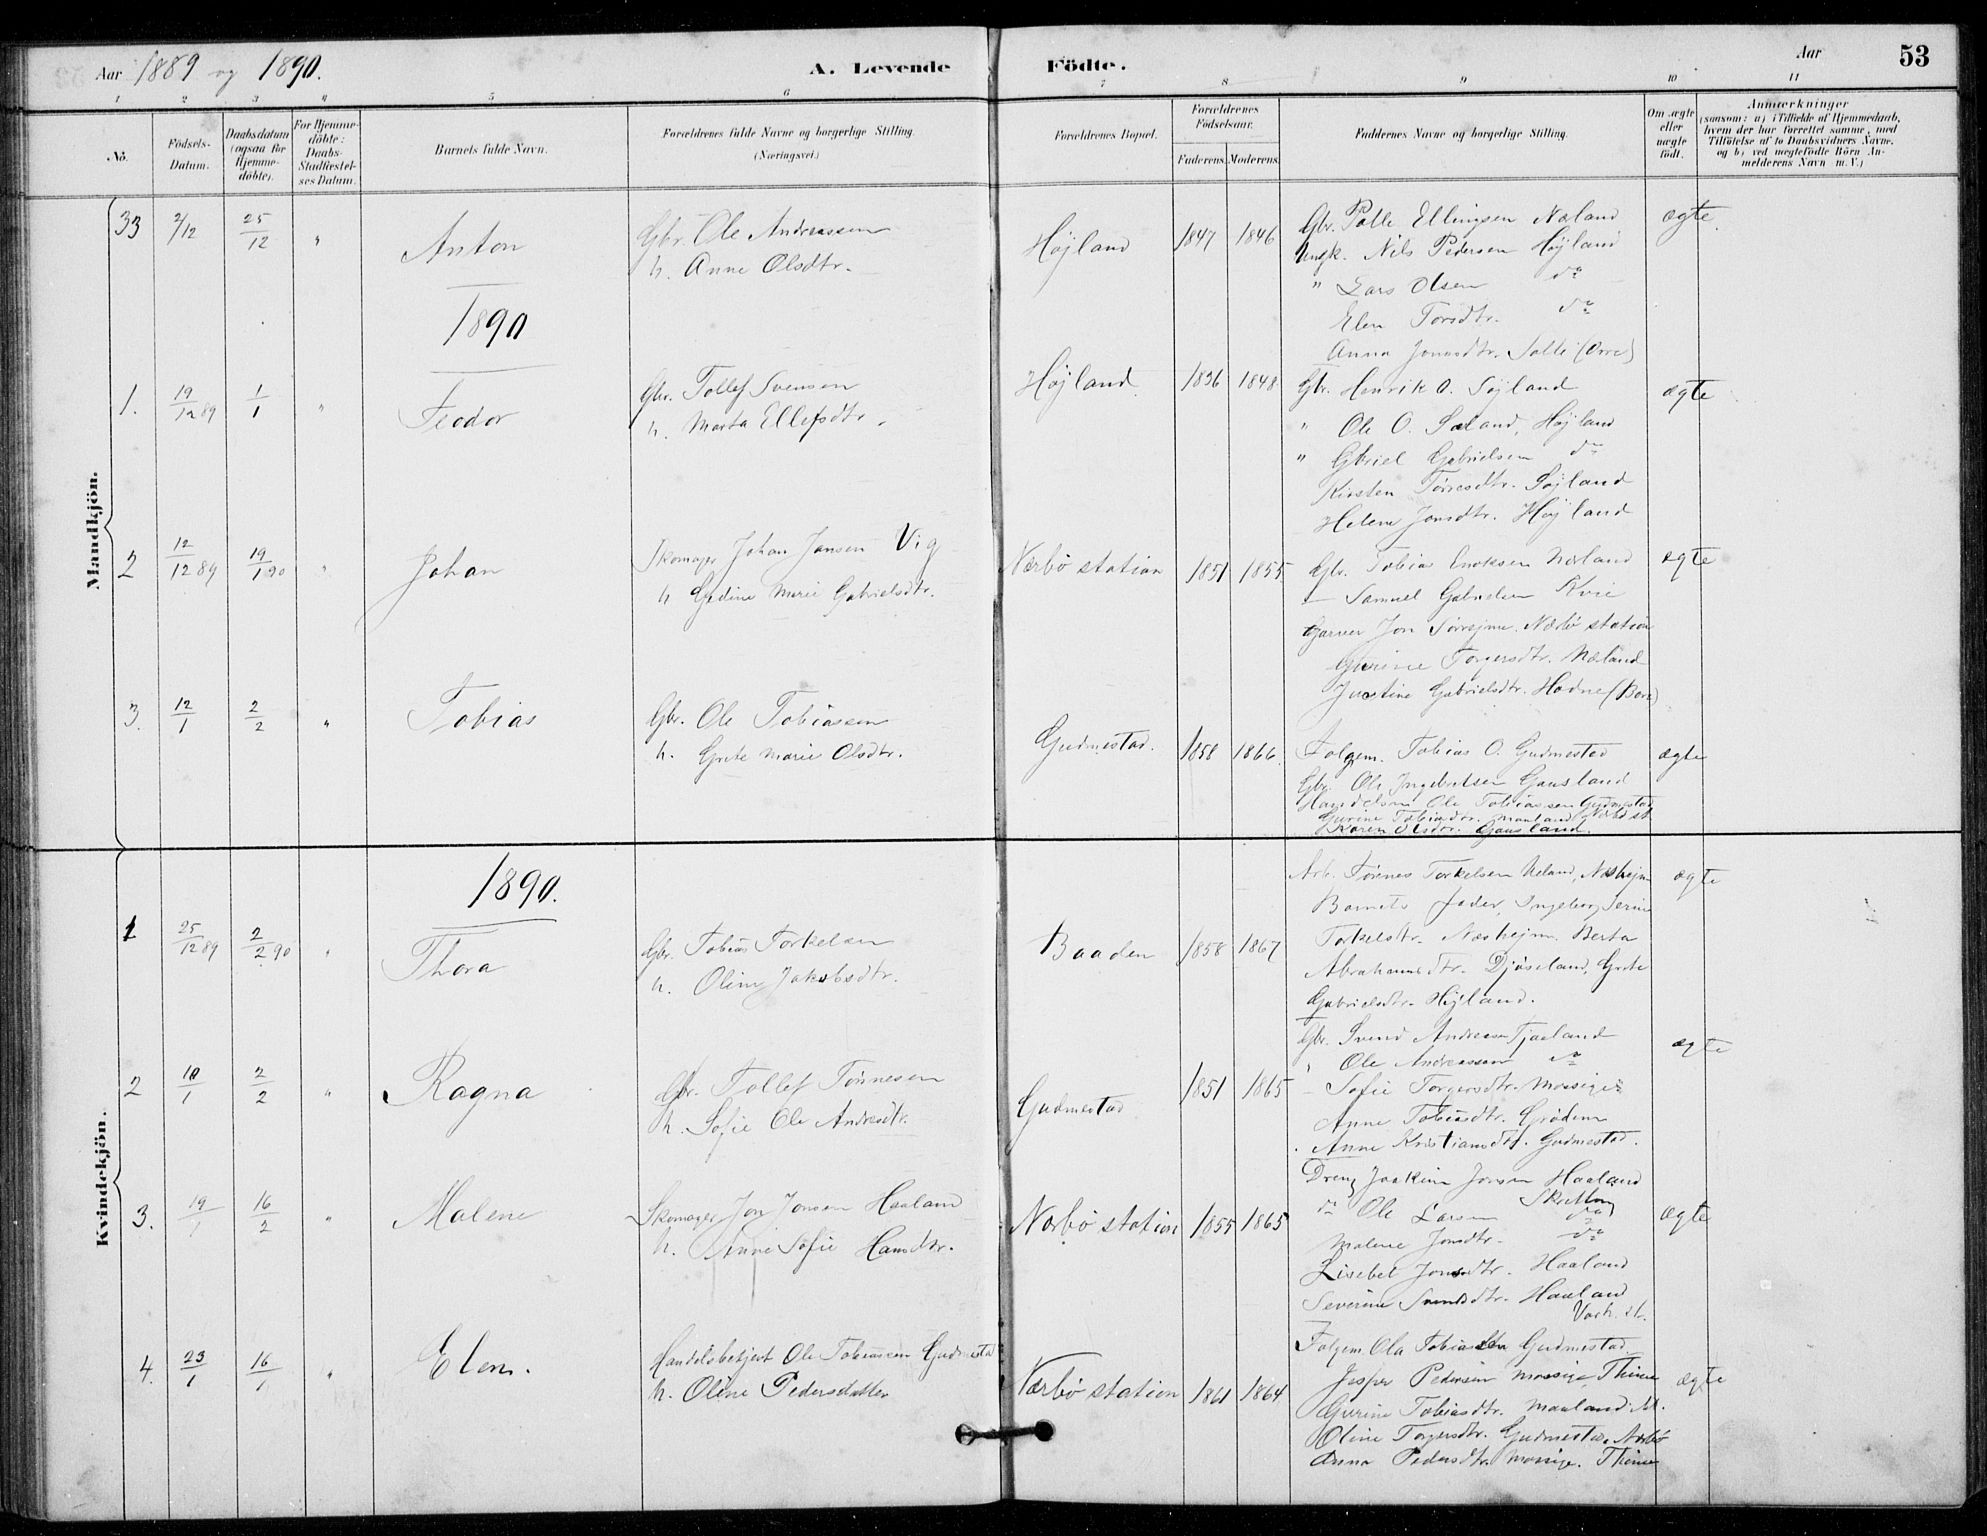 Aar 1889 og 1890.
A. Levende Födte.
Aar
53
1 2 3 4 5 6 7 8 9 10 11
No.
Födsels-
Datum.
Daabsdatum
(ogsaa for
Hjemme-
döbte).
For Hjemme-
döbte:
Daabs-
Stadfæstel-
ses Datum.
Barnets fulde Navn.
Forældrenes fulde Navne og borgerlige Stilling.
(Næringsvei.)
Forældrenes Bopæl.
Forældrenes
Födselsaar.
Faderens. Moderens.
Faddernes Navne og borgerlige Stilling.
Om ægte
eller
uægte
födt.
Anmærkninger
(saasom: a) i Tilfælde af Hjemmedaab,
hvem der har forrettet samme, med
Tilföielse af to Daabsvidners Navne,
og b) ved uægtefödte Börn An-
melderens Navn m. V.)
Mandkjön.
33 2/12 25/12 " Anton
Gbr. Ole Andreassen
h. Anne Olsdtr.
Højland 1847 1846
Gbr. Palle Ellingsen Næland
Ungk. Nils Pedersen Højland
" Lars Olsen do
Elen Torsdtr. do
Anna Jonasdtr. Salte (Orre)
ægte
1890
1. 19/12 89 1/1 " Teodor
Gbr. Tollef Svensen
h. Marta Ellefsdtr.
Højland 1836 1848
Gbr. Henrik O. Søjland
" Ole O. Sæland, Højland
" Gbriel Gabrielsen do
Kirsten Tørresdtr. Søjland
Helene Jonsdtr. Højland
ægte
2 12/12 89 19/1 90 " Johan
Skomager Johan Jansen Vig
h Gedine Marie Gabrielsdtr.
Nærbø station 1851 1855
Gbr. Tobias Enoksen Næland
— Samuel Gabrielsen Kvie
Garver Jon Nærbø station
Gurine Torgersdtr. Næland
Justine Gabrielsdtr. Hodne (Bore)
ægte
3. 12/1 2/2 " Tobias
Gbr. Ole Tobiassen
h. Grete Marie Olsdtr.
Gudmestad. 1858 1866
Folgem. Tobias O. Gudmestad
Gbr. Ole Ingebretsen Gausland
Handelsm Ole Tobiassen Gudmestad
Gurine Tobiasdtr. Maaland Nærbø st
Karen Olsdtr. Gausland.
ægte
Kvindekjön.
1890.
1 25/12 89 2/2 90 " Thora
Gbr. Tobias Torkelsen
h. Oline Jakobsdtr.
Baaden 1858 1867
Arb. Tønnes Torkelsen Ueland, Næshejm
Barnets Fader, Ingeborg Serine
Torkelsdtr. Næshejm. Berta
Abrahamsdtr. Djøseland, Grete
Gabrielsdtr. Højland.
ægte
2 10/1 2/2 " Ragna
Gbr. Tollef Tønnesen
h. Sofie Ole Andresdtr.
Gudmestad 1851 1865
Gbr. Svend Andreasen Tjaaland
" Ole Andreassen do
— Sofie Torgersdtr. Mossige
Anne Tobiasdtr. Grødem
Anne Kristiansdtr. Gudmestad.
ægte
3. 19/1 16/2 " Malene
Skomager Jon Jonsen Haaland
h. Anne Sofie Hansdtr.
Nærbø station 1855 1865
Dreng Joakim Jonsen Haaland
do Ole Larsen
Malene Jonsdtr. do
Lisebet Jonsdtr. Haaland
Severine Svendsdtr. Haaland
Varh. st.
ægte
4. 23/1 16/1 " Elen.
Handelsbetjent Ole Tobiassen Gudmestad
h. Oline Pedersdatter
Nærbø station 1861 1864
Folgem. Ola Tobiassen Gudmestad.
Jesper Pedersen Mossige Thime
Gurine Tobiasdtr. Maaland
Oline Torgersdtr. Gudmestad, Nærbø
Anna Pedersdtr. Mossige. Thime
ægte